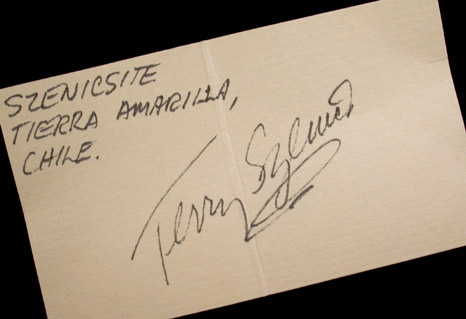 SZENICSITE
TIERRA AMARILLA,
CHILE.
Terry Szenics